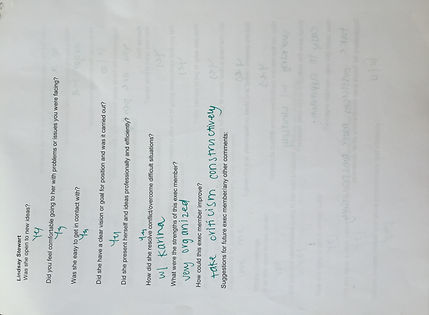 Lindsay Stewart
Was she open to new ideas?
Yes
Did you feel comfortable going to her with problems or issues you were facing?
Yes
Was she easy to get in contact with?
Yes
Did she have a clear vision or goal for position and was it carried out?
Yes
Did she present herself and ideas professionally and efficiently?
Yes
How did she resolve conflict/overcome difficult situations?
w/ Karina
What were the strengths of this exec member?
very organized
How could this exec member improve?
take criticism constructively
Suggestions for future exec member/any other comments: